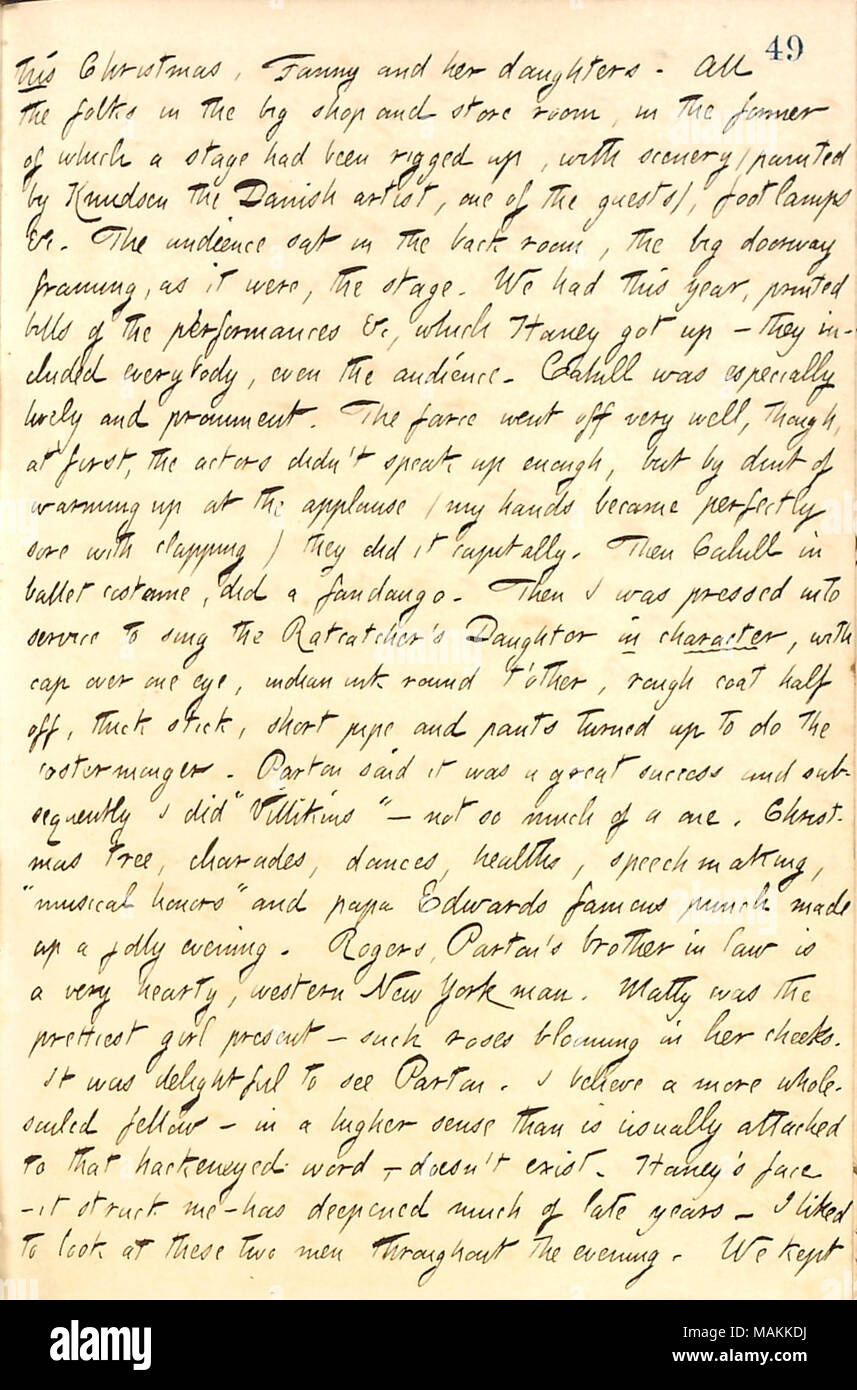 49
this Christmas, Fanny and her daughters. All
the folks in the big shop and store room, in the former
of which a stage had been rigged up, with scenery (painted
by Knudsen the Danish artist, one of the guests), footlamps
&c. The audience sat in the back room, the big doorway
framing, as it were, the stage. We had this year, printed
bills of the performances &c, which Haney got up — they in-
cluded everybody, even the audience. Cahill was especially
lively and prominent. The farce went off very well, though,
at first, the actors didn't speak up enough, but by dint of
warming up at the applause (my hands became perfectly
sore with clapping) they did it capitally. Then Cahill in
ballet costume, did a fandango. Then I was pressed into
service to sing the Ratcatcher's Daughter in character, with
cap over one eye, indian ink round t'other, rough coat half
off, thick stick, short pipe and pants turned up to do the
costermonger. Parton said it was a great success and sub-
sequently I did "Villikins" — not so much of a one. Christ-
mas tree, charades, dances, healths, speech making,
"musical honors" and papa Edwards famous punch made
up a jolly evening. Rogers, Parton's brother in law is
a very hearty, western New York man. Matty was the
prettiest girl present — such roses blooming in her cheeks.
It was delightful to see Parton. I believe a more whole-
souled fellow — in a higher sense than is usually attached
to that hackeneyed word — doesn't exist. Haney's face
— it struck me — has deepened much of late years — I liked
to look at these two men throughout the evening. We kept
alamy
Image ID: MAKKDJ
www.alamy.com